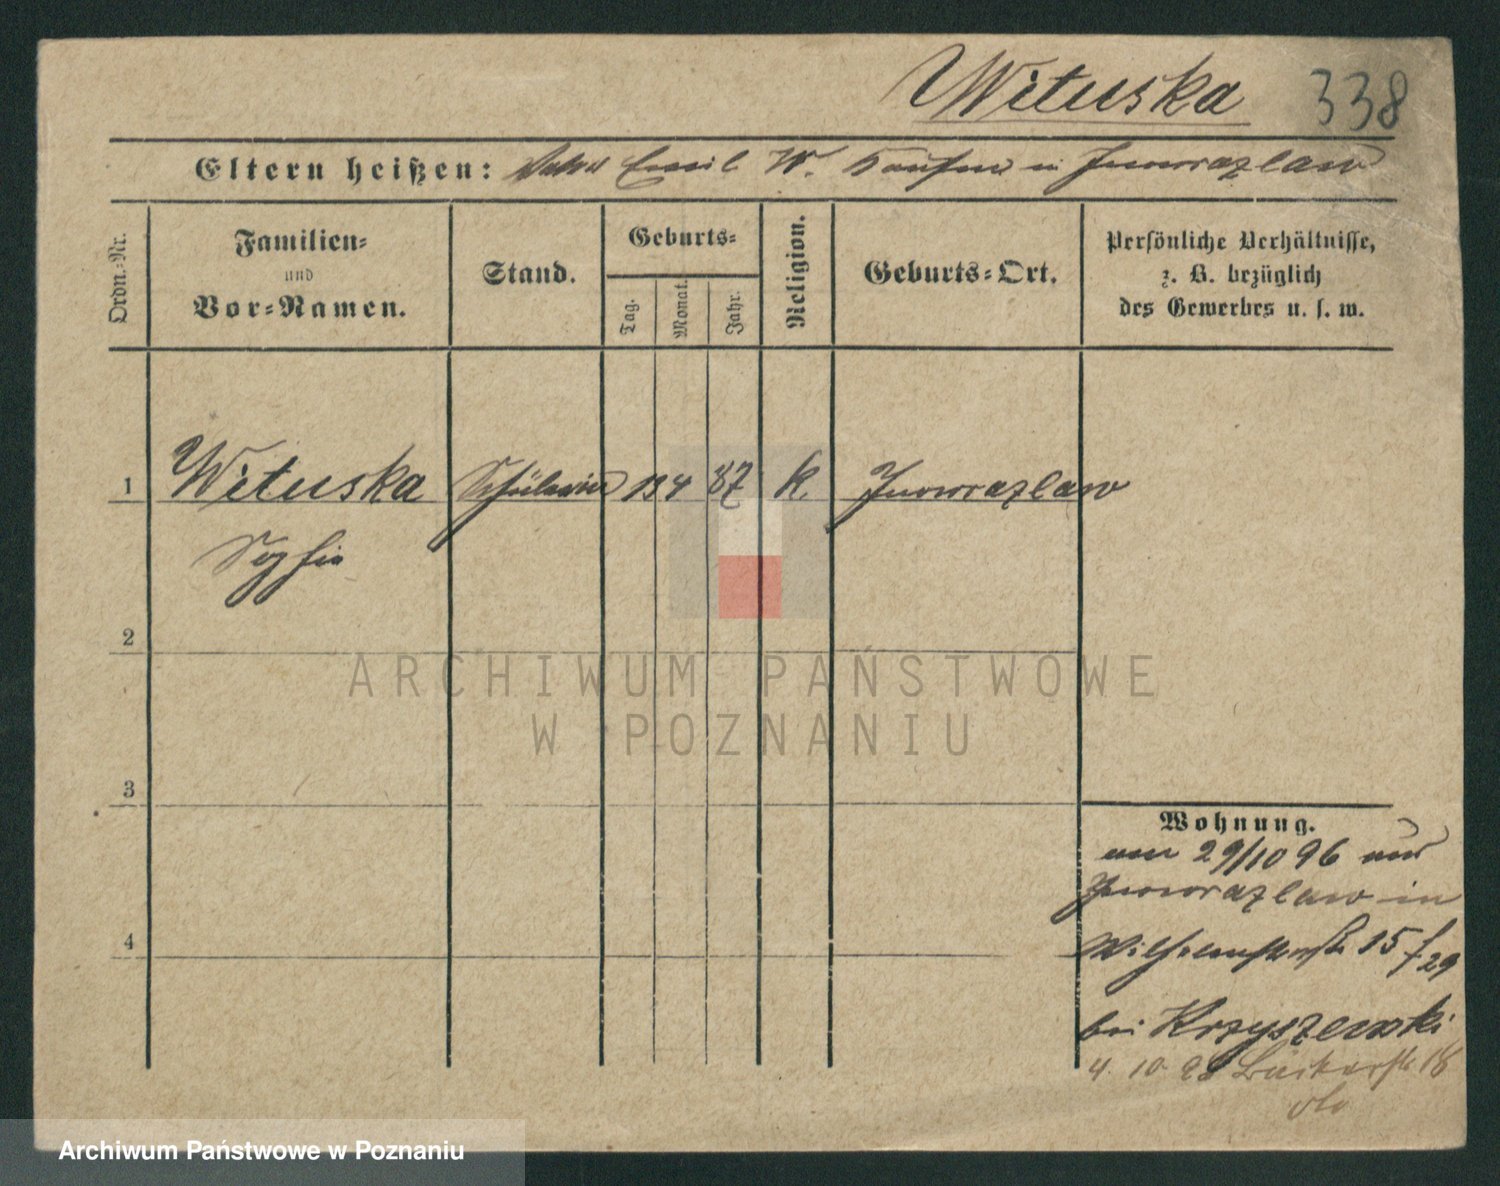 Wituska 338
Eltern heißen: Vater Emil W. Kaufm in Inowrazlaw
Ordn.-Nr.
Familien-
und
Vor-Namen.
Stand.
Geburts-
Tag.
Monat.
Jahr.
Religion.
Geburts-Ort.
Persönliche Verhältnisse,
z. B. bezüglich
des Gewerbes u. s. w.
1 Wituska Schülerin 13 4 87 k. Inowrazlaw
Sophie
2
ARCHIWUM PAŃSTWOWE
W POZNANIU
3
Wohnung.
am 29/10 96 aus
Inowrazlaw in
4
Wilhelmstraße 15 f. 29
bei Krzyszewski
4. 10. 98 Bäckerstr. 18
Archiwum Państwowe w Poznaniu